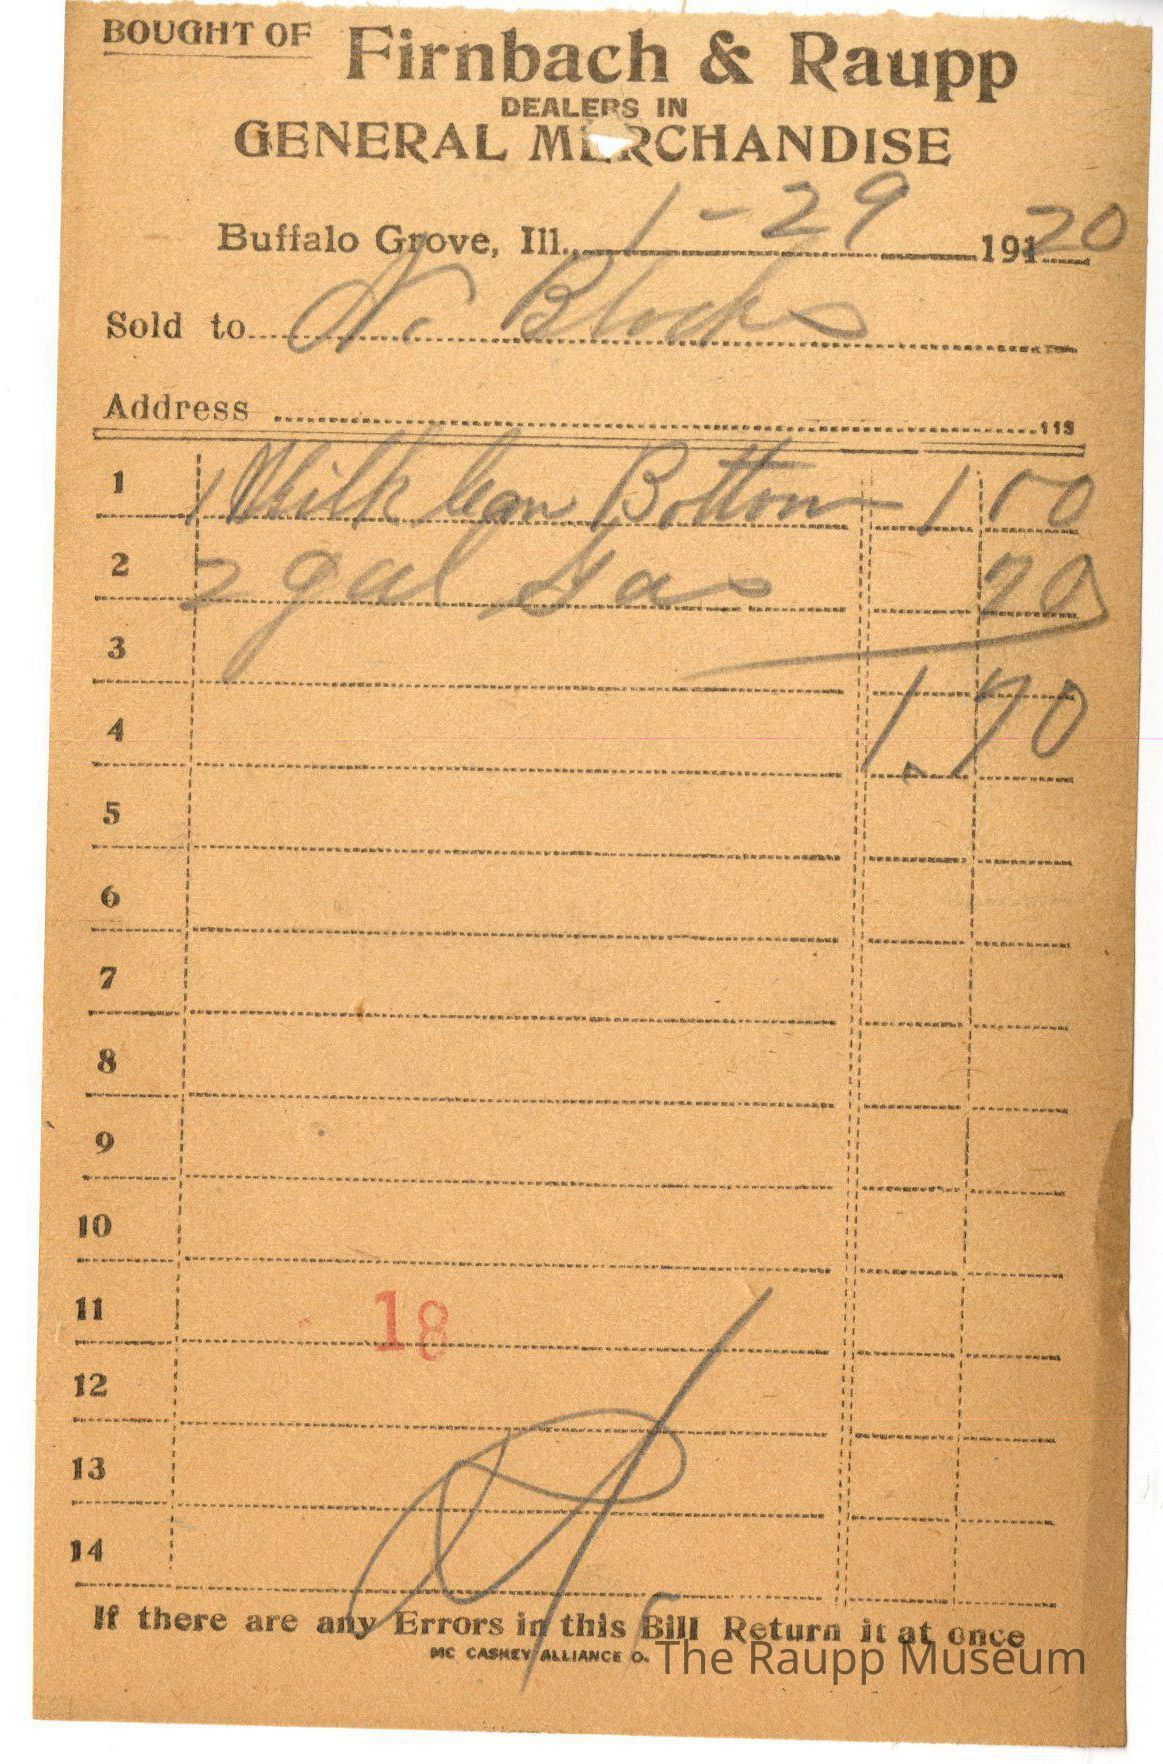 BOUGHT OF Firnbach & Raupp
DEALERS IN
GENERAL MERCHANDISE
Buffalo Grove, Ill. 1-29 191 20
Sold to N. Blocks
Address 118
1 1 Milk Can Bottom 1 50
2 2 gal Gas 20
3
4 1.70
5
6
7
8
9
10
11 18
12
13
14
If there are any Errors in this Bill Return it at once
MC CASKEY ALLIANCE O.
The Raupp Museum